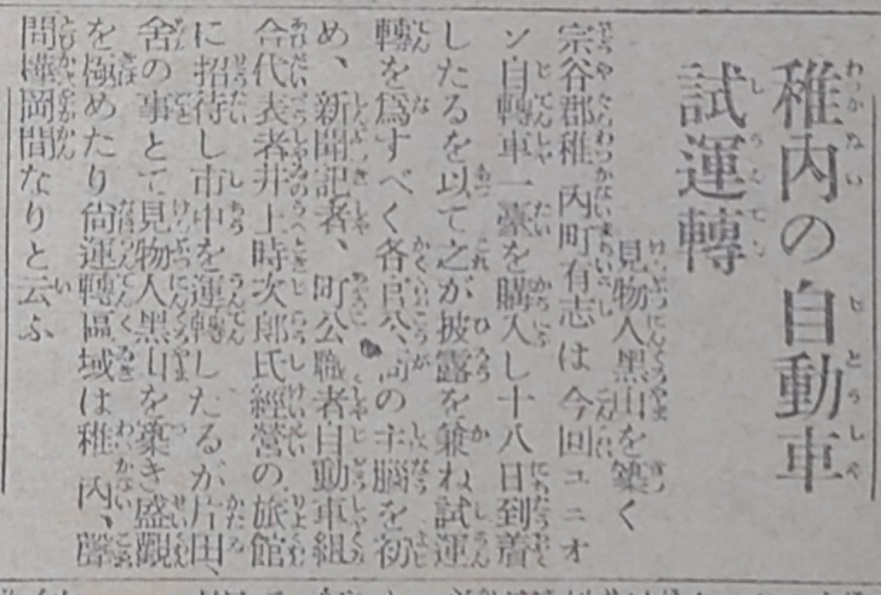 稚内の自動車
試運轉
見物人黒山を築く
宗谷郡稚內町有志は今回ユニオ
ン自轉車一臺を購入し十八日到着
したるを以て之が披露を兼ね試運
轉を爲すべく各官公の主腦を初
め、新聞記者、町公職者自動車組
合代表者井上時次郎氏經營の旅館
に招待し市中を運轉したるが片田
舍の事とて見物人黒山を築き盛觀
を極めたり尙運轉區域は稚內、聲
問樺岡間なりと云ふ